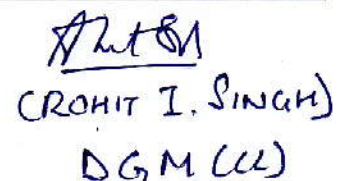 (ROHIT I. SINGH)
DGM (CL)